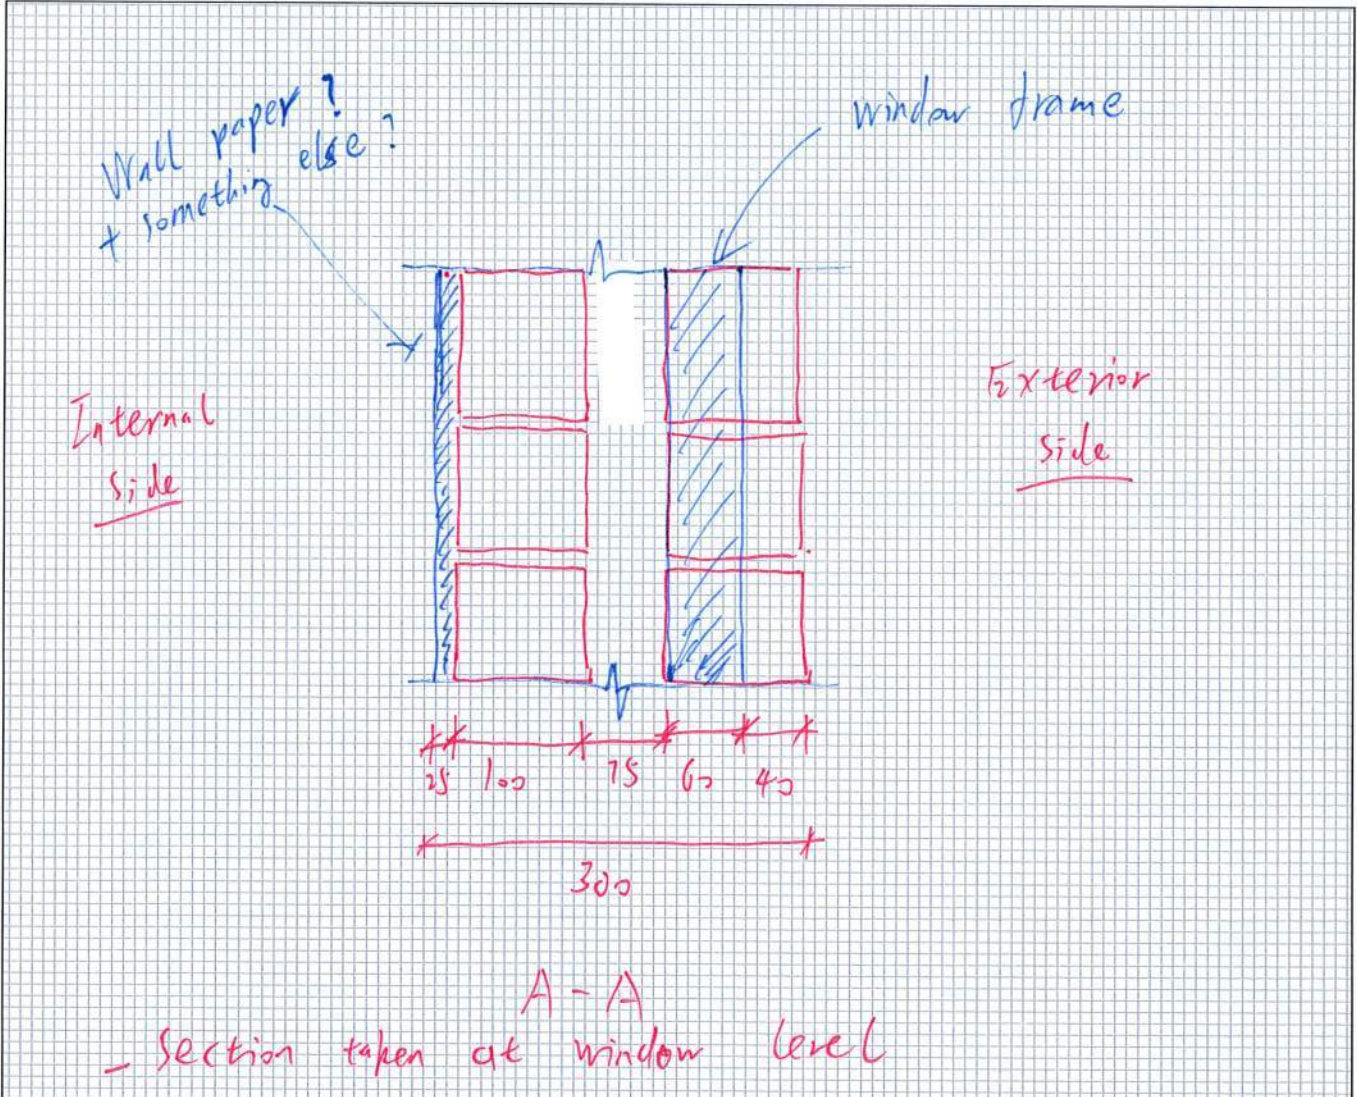 Wall paper?
+ something else?
window frame
Internal
side
Exterior
side
25 100 75 60 40
300
A-A
- Section taken at window level